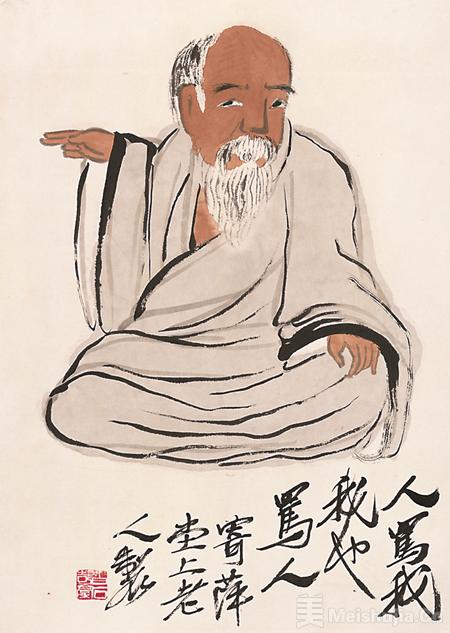 人骂我
我也
骂人
寄萍
堂上老
人製
美 Meishujia.Cn